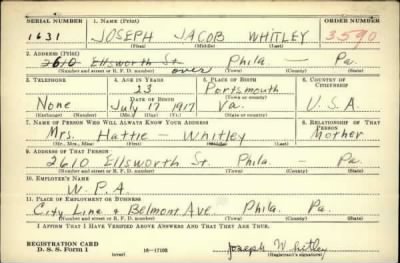 SERIAL NUMBER 1. NAME (Print) ORDER NUMBER
1631 JOSEPH JACOB WHITLEY 3590
(First) (Middle) (Last)
2. ADDRESS (Print)
2610 Ellsworth St. over Phila. — Pa.
(Number and street or R. F. D. number) (Town) (County) (State)
3. TELEPHONE 4. AGE IN YEARS 5. PLACE OF BIRTH 6. COUNTRY OF CITIZENSHIP
23 Portsmouth
DATE OF BIRTH (Town or county)
None July 17 1917 Va. U.S.A
(Exchange) (Number) (Mo.) (Day) (Yr.) (State or country)
7. NAME OF PERSON WHO WILL ALWAYS KNOW YOUR ADDRESS 8. RELATIONSHIP OF THAT PERSON
Mrs. Hattie — Whitley Mother
(Mr., Mrs., Miss) (First) (Middle) (Last)
9. ADDRESS OF THAT PERSON
2610 Ellsworth St. Phila. — Pa.
(Number and street or R. F. D. number) (Town) (County) (State)
10. EMPLOYER'S NAME
W.P.A.
11. PLACE OF EMPLOYMENT OR BUSINESS
City Line & Belmont Ave. Phila. Pa.
(Number and street or R. F. D. number) (Town) (County) (State)
I AFFIRM THAT I HAVE VERIFIED ABOVE ANSWERS AND THAT THEY ARE TRUE.
REGISTRATION CARD
D. S. S. Form 1 16—17105 Joseph Whitley
(Registrant's signature)